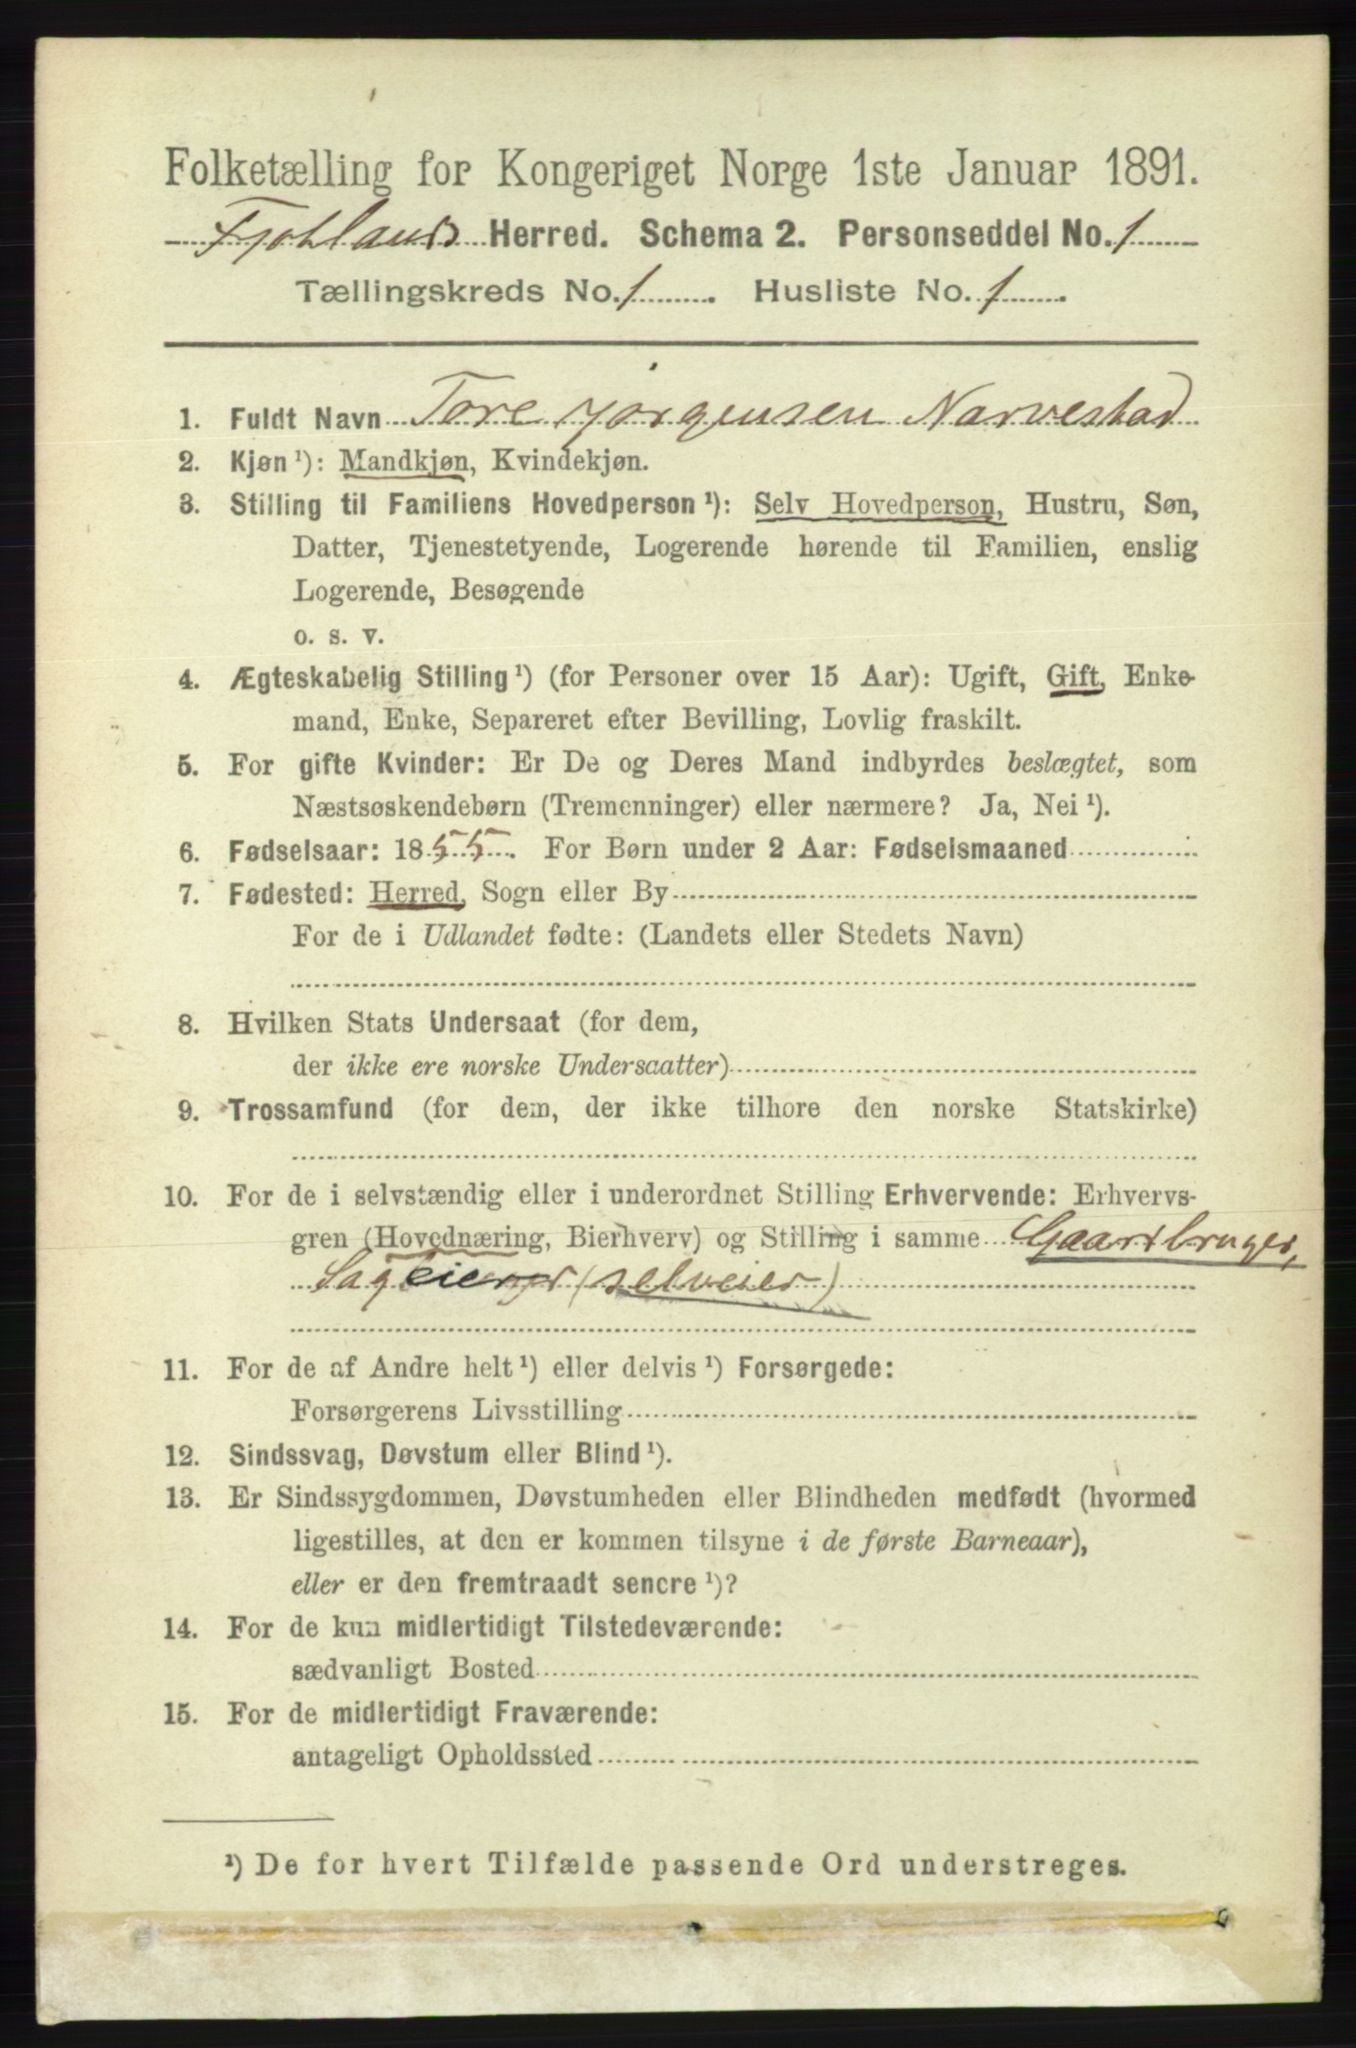 Folketælling for Kongeriget Norge 1ste Januar 1891.
Fjotlands Herred. Schema 2. Personseddel No. 1
Tællingskreds No. 1. Husliste No. 1.
1. Fuldt Navn Tore Jørgensen Narvestad
2. Kjøn ¹): Mandkjøn, Kvindekjøn.
3. Stilling til Familiens Hovedperson ¹): Selv Hovedperson, Hustru, Søn,
Datter, Tjenestetyende, Logerende hørende til Familien, enslig
Logerende, Besøgende
o. s. v.
4. Ægteskabelig Stilling ¹) (for Personer over 15 Aar): Ugift, Gift, Enke-
mand, Enke, Separeret efter Bevilling, Lovlig fraskilt.
5. For gifte Kvinder: Er De og Deres Mand indbyrdes beslægtet, som
Næstsøskendebørn (Tremenninger) eller nærmere? Ja, Nei ¹).
6. Fødselsaar: 1855. For Børn under 2 Aar: Fødselsmaaned
7. Fødested: Herred, Sogn eller By
For de i Udlandet fødte: (Landets eller Stedets Navn)
8. Hvilken Stats Undersaat (for dem,
der ikke ere norske Undersaatter)
9. Trossamfund (for dem, der ikke tilhore den norske Statskirke)
10. For de i selvstændig eller i underordnet Stilling Erhvervende: Erhvervs-
gren (Hovednæring, Bierhverv) og Stilling i samme Gaardbruger,
Sageier (selveier)
11. For de af Andre helt ¹) eller delvis ¹) Forsørgede:
Forsørgerens Livsstilling
12. Sindssvag, Døvstum eller Blind ¹).
13. Er Sindssygdommen, Døvstumheden eller Blindheden medfødt (hvormed
ligestilles, at den er kommen tilsyne i de første Barneaar),
eller er den fremtraadt senere ¹)?
14. For de kun midlertidigt Tilstedeværende:
sædvanligt Bosted
15. For de midlertidigt Fraværende:
antageligt Opholdssted
¹) De for hvert Tilfælde passende Ord understreges.